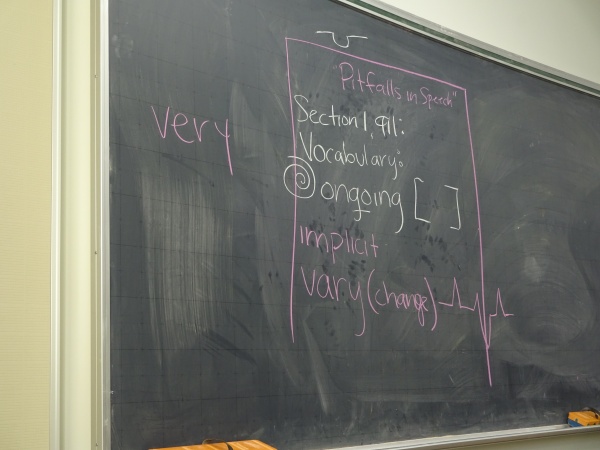 "Pitfalls in Speech"
Section 1, q11:
Vocabulary:
ongoing [ ]
implicit
vary (change)
very